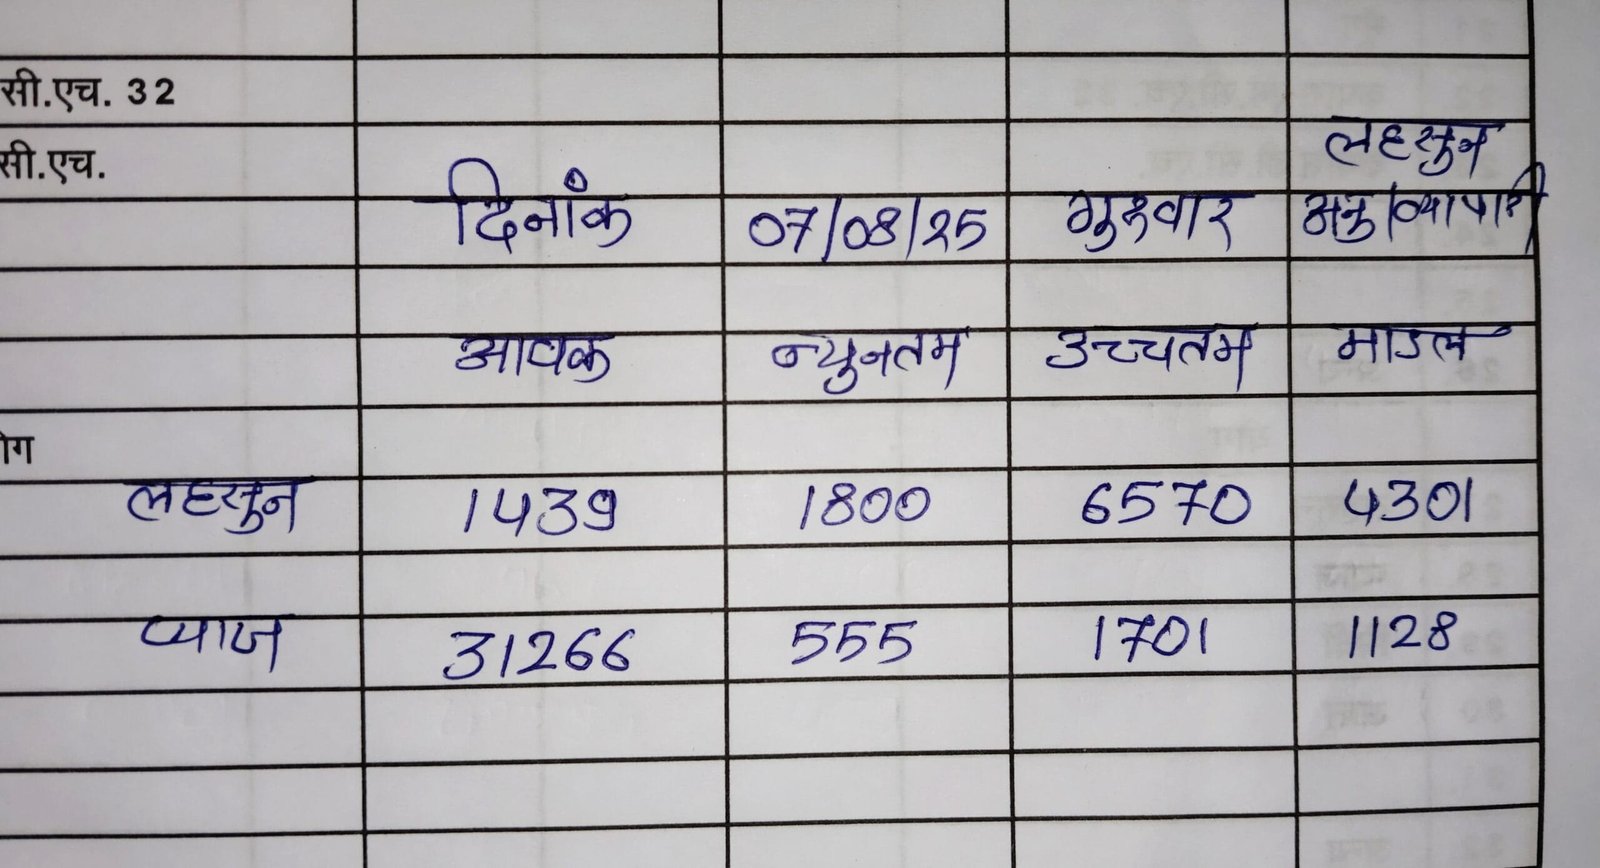 सी.एच. 32
सी.एच.
लहसुन
दिनांक 07/08/25 गुरुवार अनु/व्यापारी
आवक न्युनतम उच्चतम माडल
ोग
लहसुन 1439 1800 6570 4301
प्याज 31266 555 1701 1128